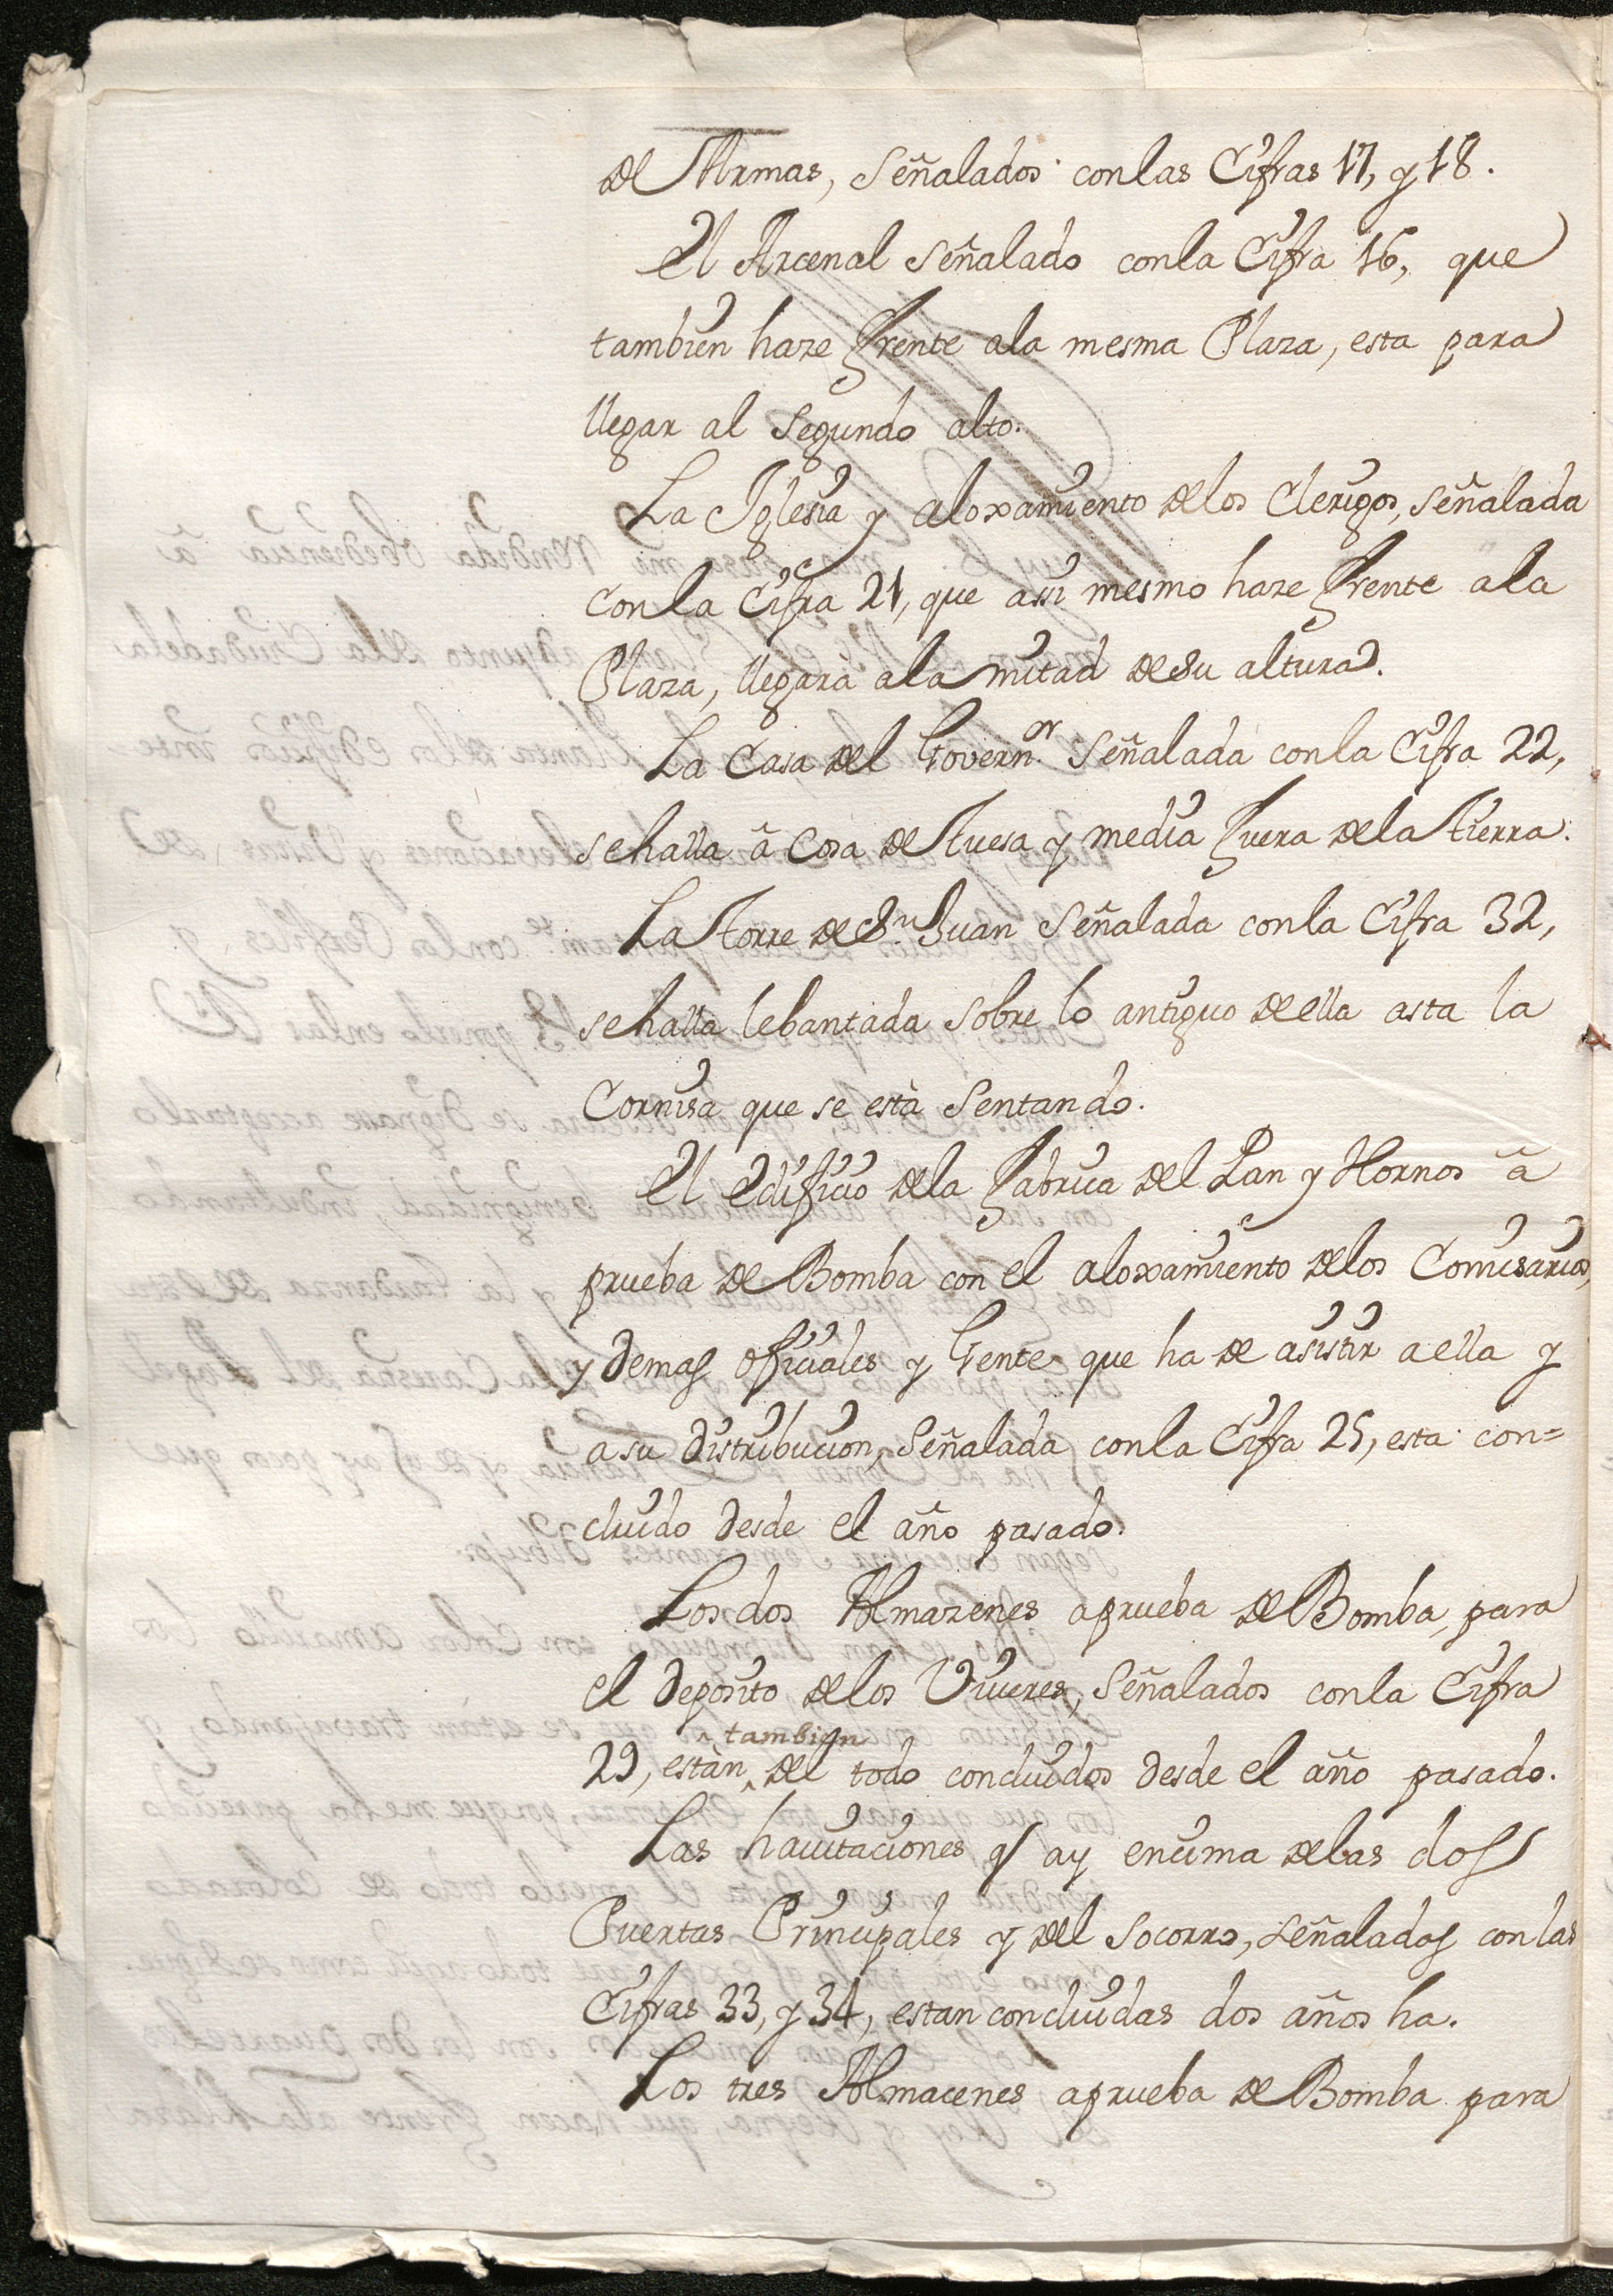 de Armas, Señalados con las Cifras 17, y 18.
El Arcenal Señalado con la Cifra 16, que
tambien haze frente a la mesma Plaza, esta para
llegar al Segundo alto.
La Iglesia y aloxamiento de los Clerigos, Señalada
con la Cifra 21, que assi mesmo haze frente a la
Plaza, llegarà a la mitad de su altura.
La Casa del Govern.or Señalada con la Cifra 22,
se halla â cosa de tuesa y media fuera de la tierra.
La Torre de S.n Juan Señalada con la Cifra 32,
se halla lebantada sobre lo antiguo de ella asta la
Cornisa que se està Sentando.
El edificio de la fabrica del Pan y Hornos â
prueba de Bomba con el aloxamiento de los Comisarios,
y demas oficiales y Gente que ha de asistir a ella y
a su distribucion, Señalada con la Cifra 25, esta con=
cluido desde el año pasado.
Los dos Almazenes a prueba de Bomba, para
el deposito de los Viveres, Señalados con la Cifra
29, estàn tambien del todo concluidos desde el año pasado.
Las havitaciones q ay encima de las dos
Puertas Principales y del Socorro, Señaladas con las
Cifras 33, y 34, estan concluidas dos años ha.
Los tres Almacenes a prueba de Bomba para